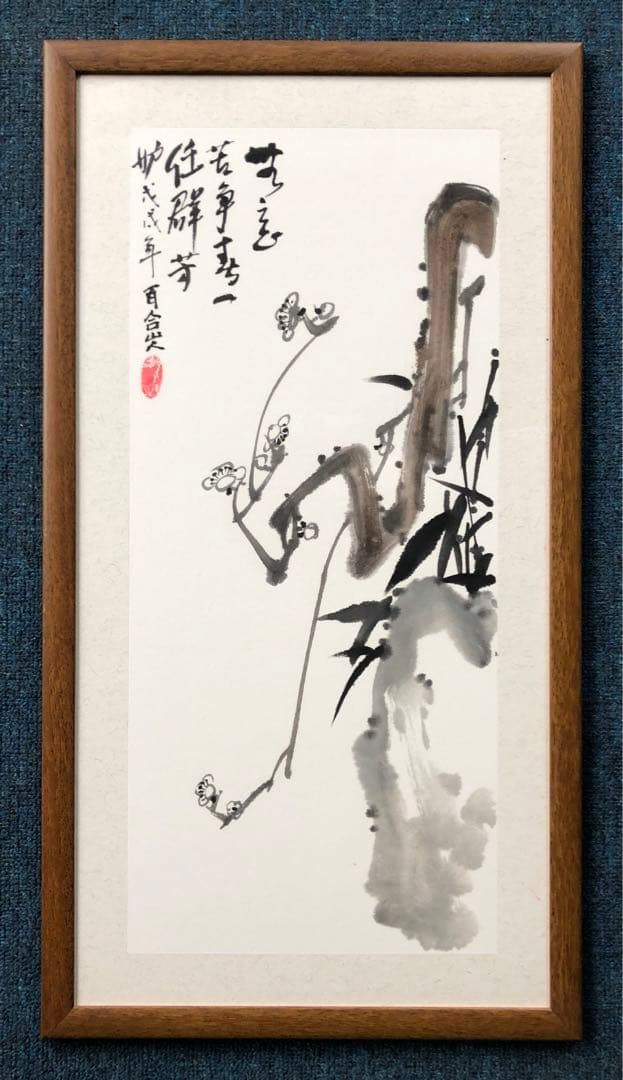 無意
苦争春一
任群芳
妒戊戌年百合山人